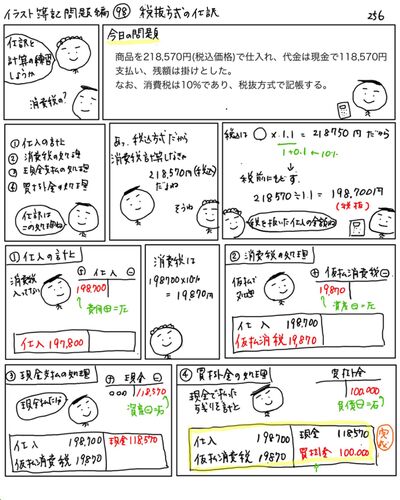 イラスト簿記問題編 98 税抜方式の仕訳
256
仕訳と
計算の練習
しようか
消費税の?
今日の問題
商品を218,570円(税込価格)で仕入れ、代金は現金で118,570円
支払い、残額は掛けとした。
なお、消費税は10%であり、税抜方式で記帳する。
① 仕入の計上
② 消費税の処理
③ 現金支払の処理
④ 買掛金の処理
仕訳は
この処理ね
あっ、税込方式だから
消費税計算しなきゃ
218,570円(税込)
だよね
そうね
税込は ○ × 1.1 = 218750円 だから
1+0.1 ← 10%
税抜にもどす。
218570÷1.1 = 198,700円
(税抜)
税を抜いた仕入の金額ね
① 仕入の計上
消費税
入ってない
⊕ 仕入 ⊖
198,700
費用⊕=左
仕入 197,800
消費税は
198700×10%
= 19870円
② 消費税の処理
仮払で
処理
⊕ 仮払消費税 ⊖
19870
資産⊕=左
仕入 198,700
仮払消費税 19870
③ 現金支払の処理
現金払ったね
⊕ 現金 ⊖
000
118,570
資産⊖=右
仕入 198,700 現金 118,570
仮払消費税 19870
④ 買掛金の処理
現金で払った
残りを計上
買掛金
100,000
負債⊕=右
仕入 198700 現金 118570
仮払消費税 19870 買掛金 100,000
完成